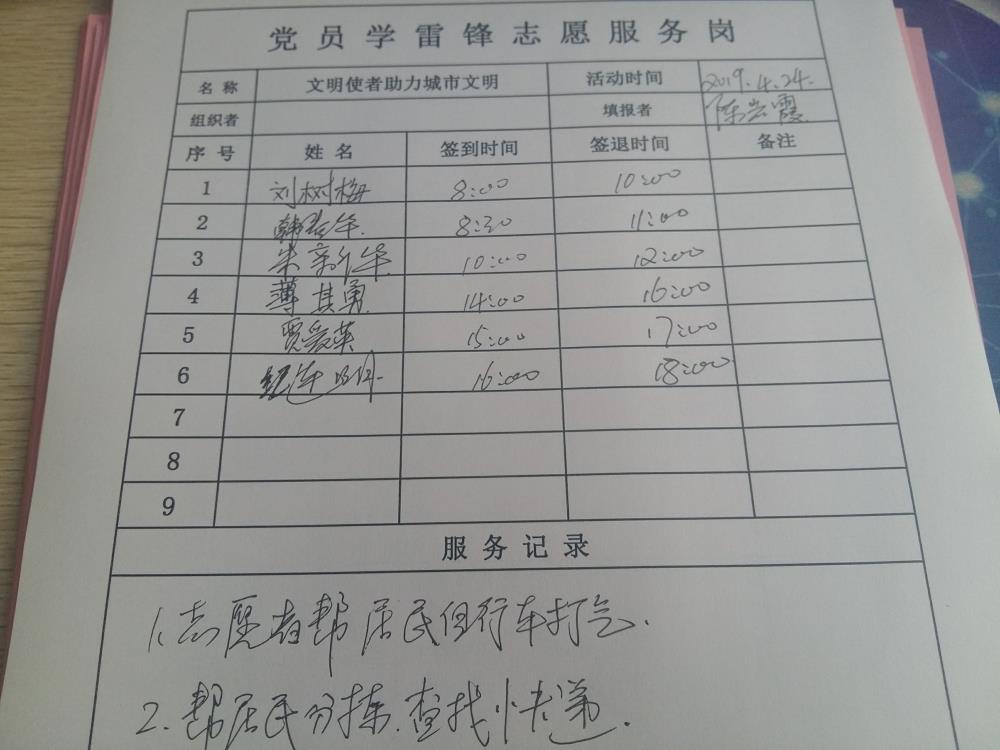 党员学雷锋志愿服务岗
名称 文明使者助力城市文明 活动时间 2019.4.24.
组织者 填报者 陈云霞
序号 姓名 签到时间 签退时间 备注
1 刘树梅 8:00 10:00
2 8:30 11:00
3 朱新华 10:00 12:00
4 薄其勇 14:00 16:00
5 贾爱英 15:00 17:00
6 16:00 18:00
7
8
9
服务记录
1.志愿者帮居民自行车打气.
2.帮居民分拣.查找快递.